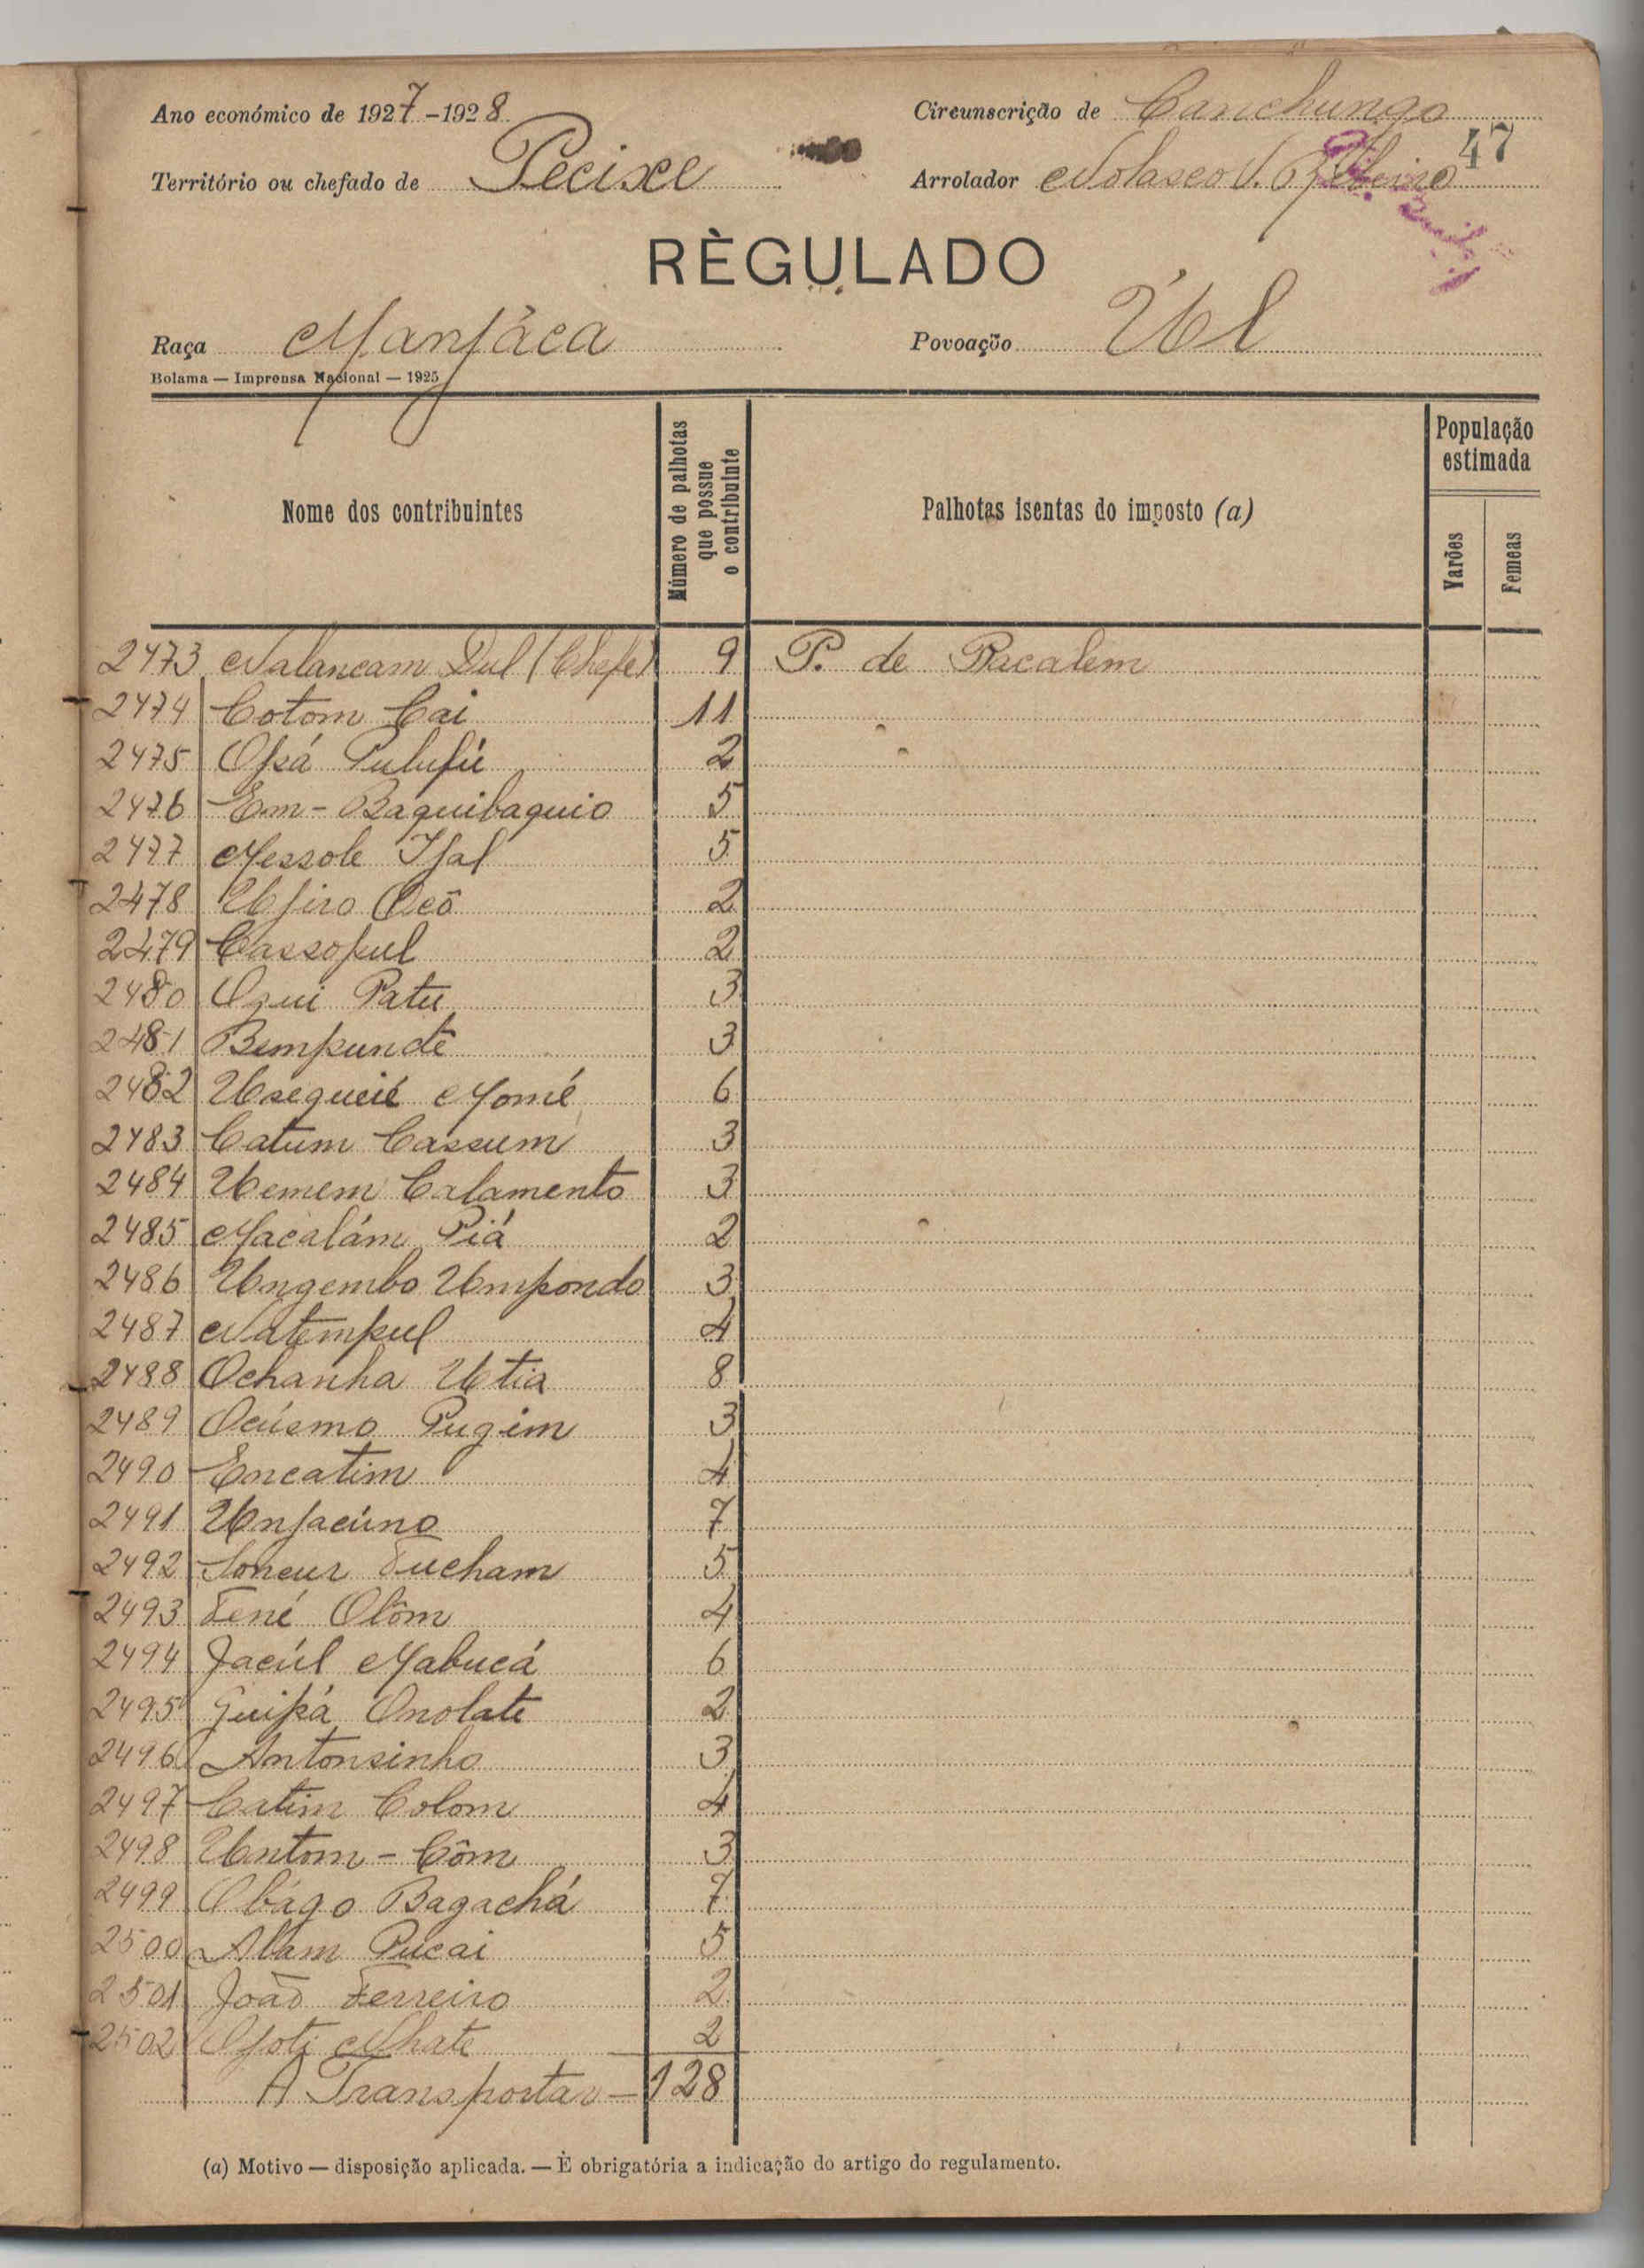 Ano económico de 1927-1928
Circunscrição de Canchungo
47
Território ou chefado de Pecixe
Arrolador Nolasco V. Ribeiro
RÈGULADO
Raça Manjáca
Povoação Ul
Bolama — Imprensa Nacional — 1925
Nome dos contribuintes
Número de palhotas que possue o contribuinte
Palhotas isentas do imposto (a)
População estimada
Varões
Femeas
2473 Nalancam Dul (Chefe) 9 P. de Bacalem
2474 Cotom Cai 11
2475 Opá Pulufú 2
2476 Em-Baquibaquio 5
2477 Messole Ifal 5
2478 Ufiro Ocô 2
2479 Cassopul 2
2480 Oqui Patu 3
2481 Bempundê 3
2482 Usequié Momé 6
2483 Catum Cassum 3
2484 Uemem Calamento 3
2485 Macalám Piá 2
2486 Ungembo Umpondo 3
2487 Natempul 4
2488 Ochanha Utia 8
2489 Ocúsmo Pugim 3
2490 Encatim 4
2491 Unjacúno 7
2492 Soncur Tucham 5
2493 Tené Olôm 4
2494 Jacúl Mabucá 6
2495 Guipá Onolate 2
2496 Antonsinho 3
2497 Catim Colom 4
2498 Untom-Côm 3
2499 Obágo Bagachá 7
2500 Alam Pucai 5
2501 João Ferreiro 2
2502 Nhate 2
A Transportar — 128
(a) Motivo — disposição aplicada. — È obrigatória a indicação do artigo do regulamento.